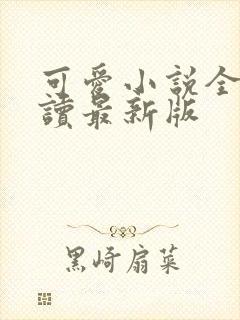 可愛小說全
讀最新版
黑崎扇菜